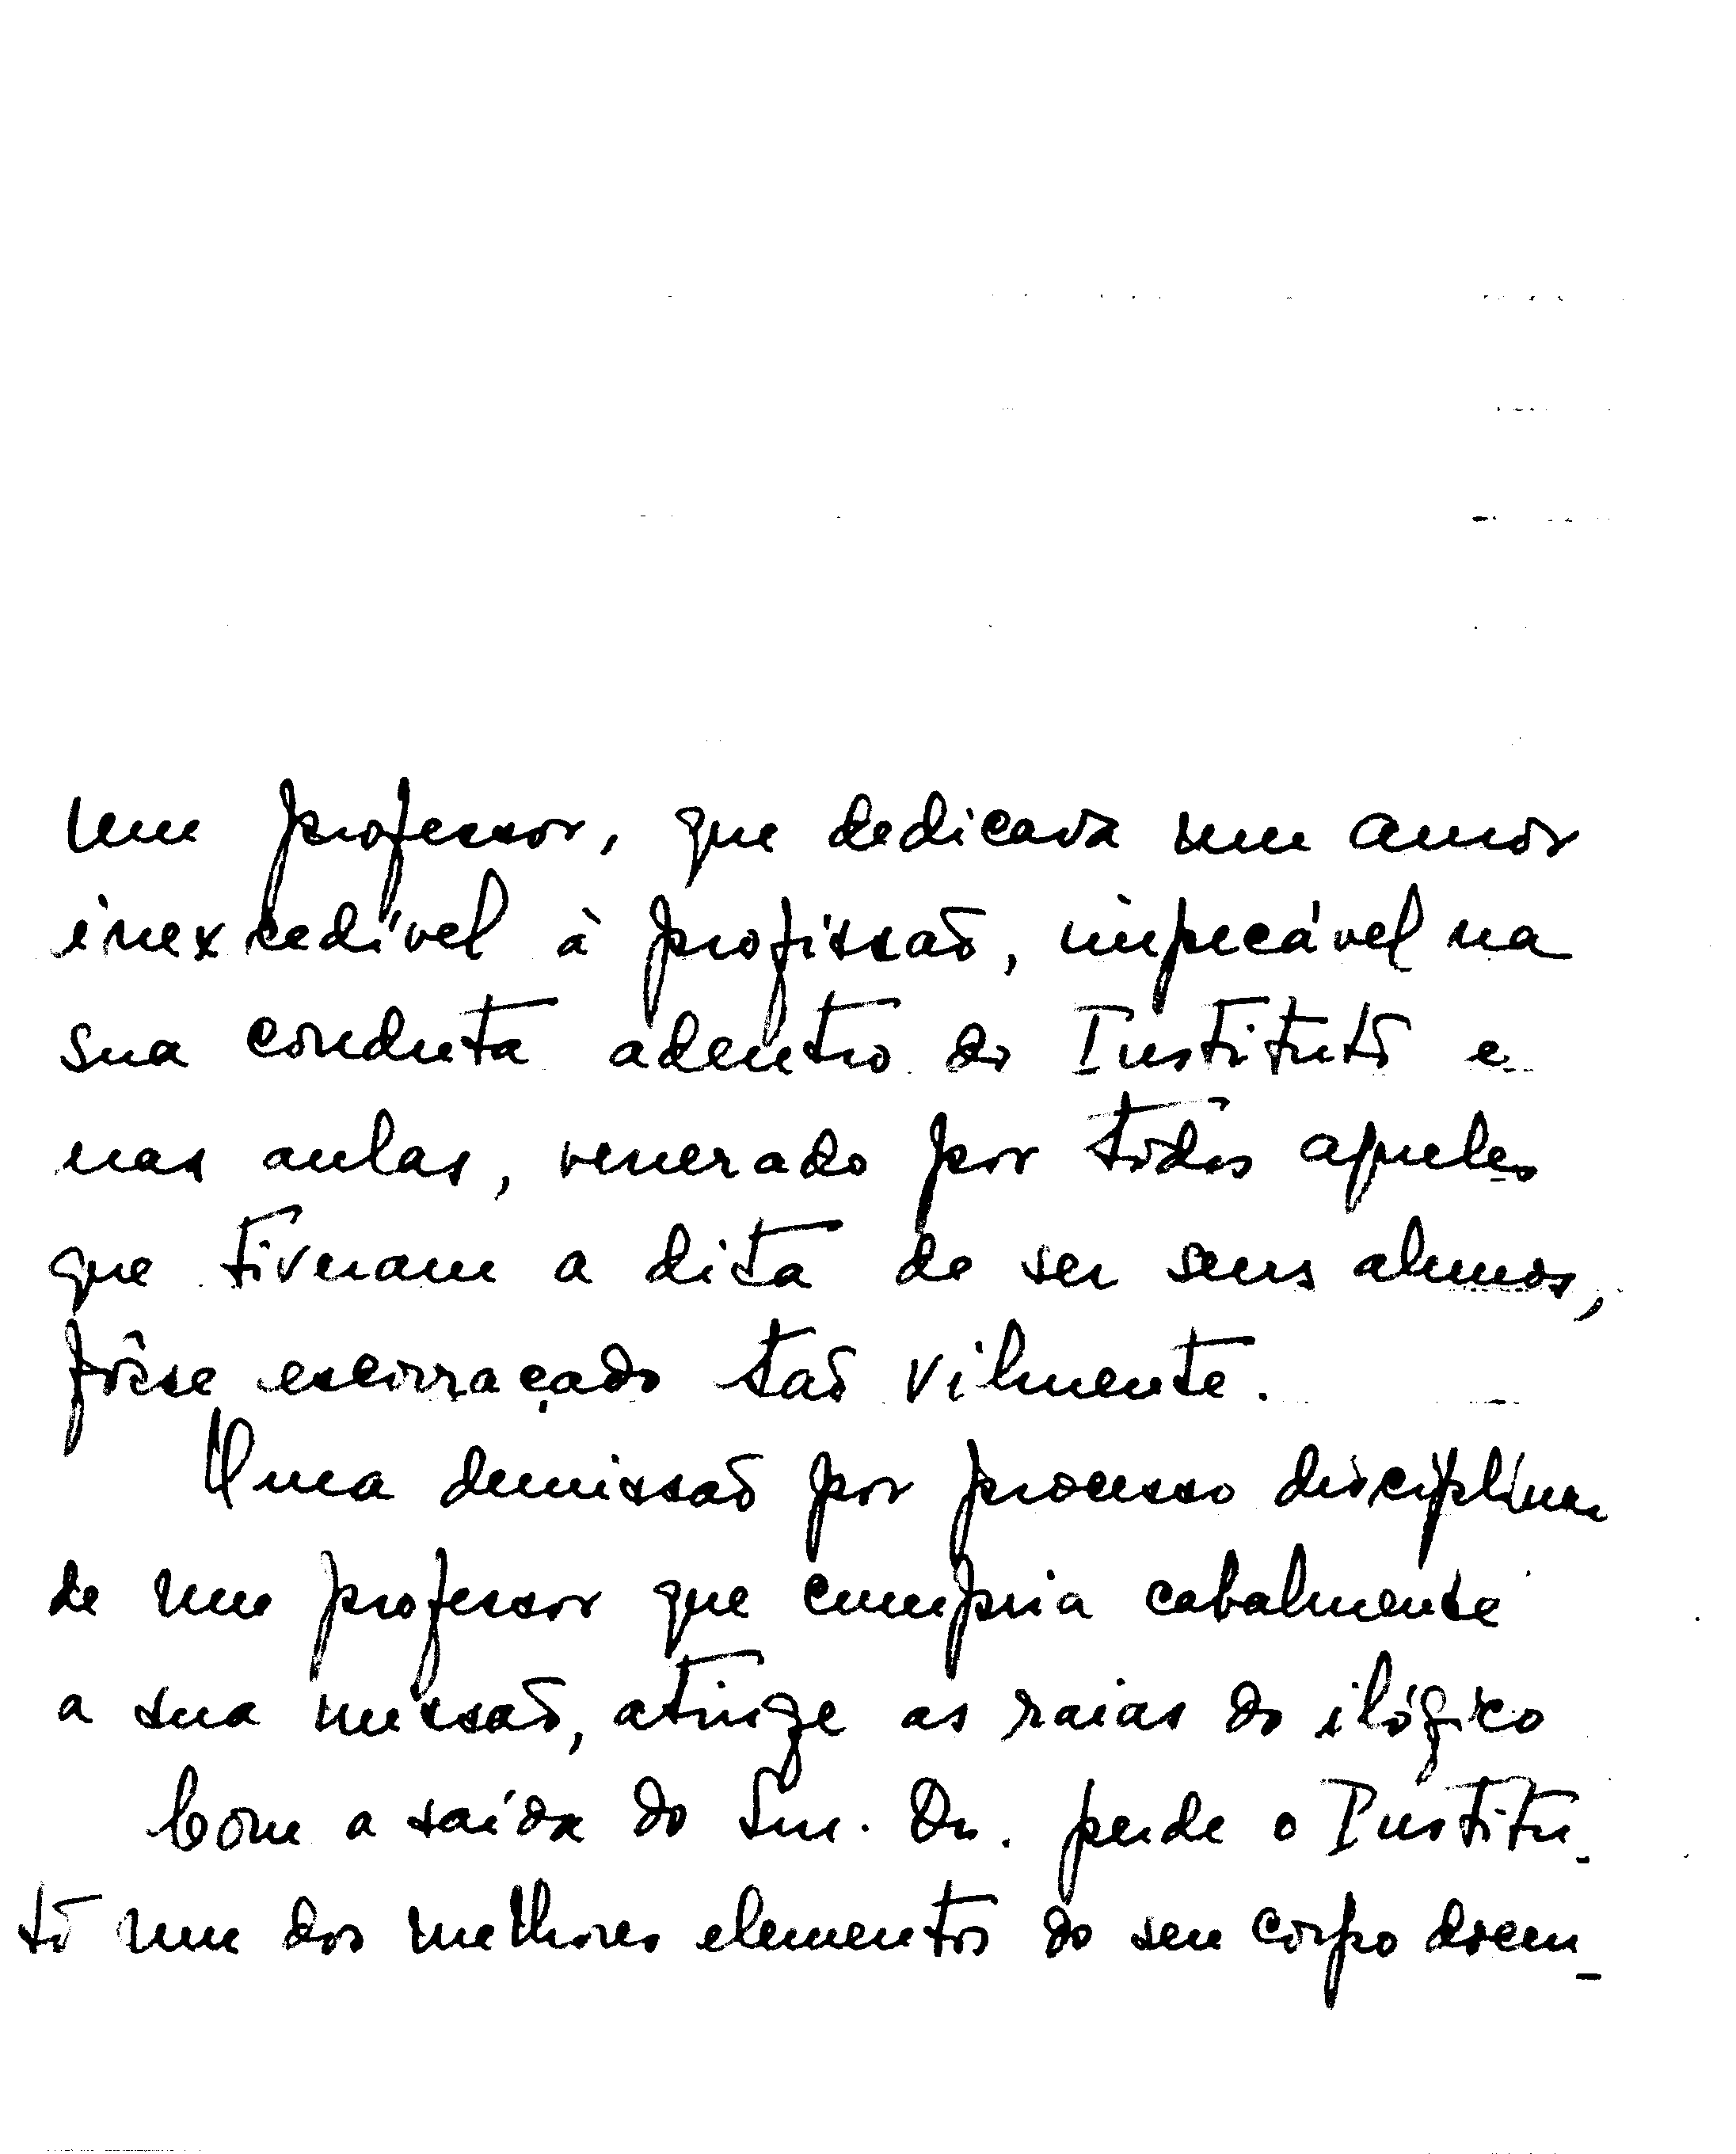 um professor, que dedicava um amor
inexcedível à profissão, impecável na
sua conduta adentro do Instituto e
nas aulas, venerado por todos aqueles
que tiveram a dita de ser seus alunos,
fôsse escorraçado tão vilmente.
Uma demissão por processo disciplinar
de um professor que cumpria cabalmente
a sua missão, atinge as raias do ilógico
Com a saída do Snr. Dr. perde o Institu-
to um dos melhores elementos do seu corpo docen-